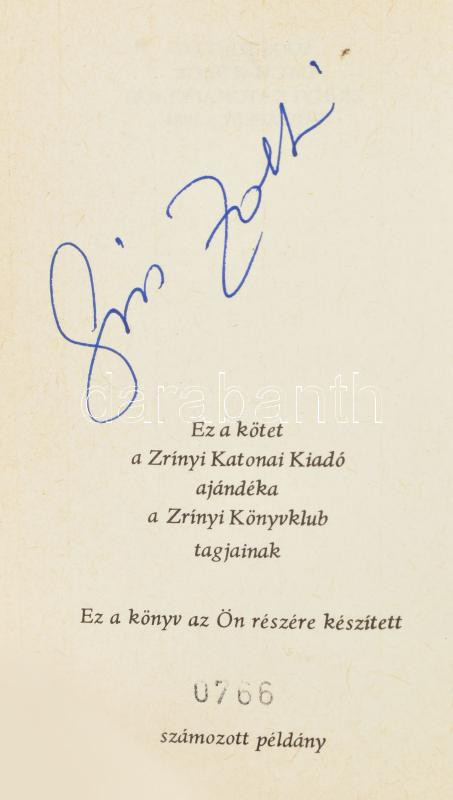 darabanth
Ez a kötet
a Zrínyi Katonai Kiadó
ajándéka
a Zrínyi Könyvklub
tagjainak
Ez a könyv az Ön részére készített
0766
számozott példány